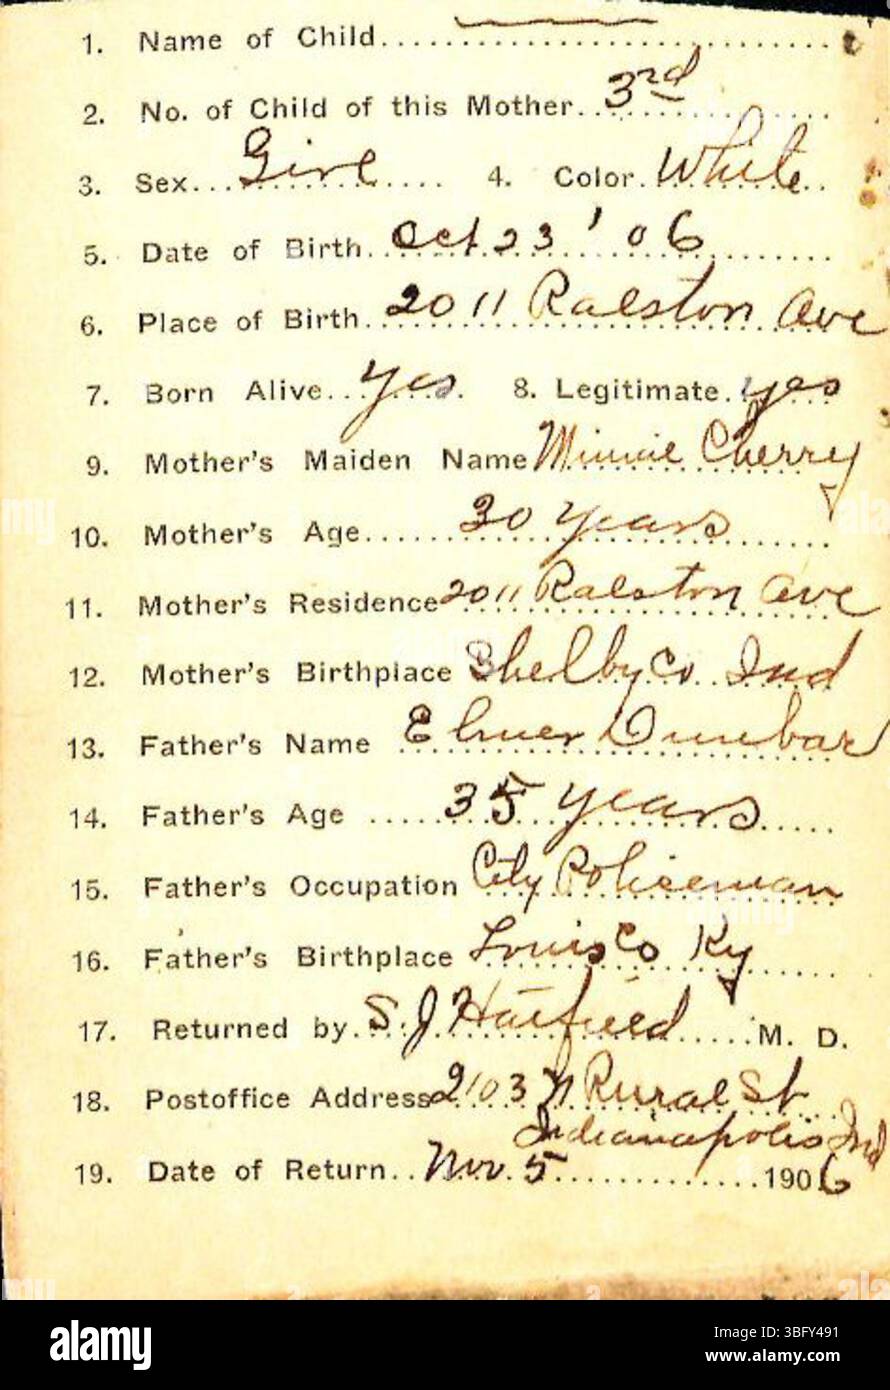 1. Name of Child
2. No. of Child of this Mother 3rd
3. Sex Girl 4. Color White
5. Date of Birth Oct 23 '06
6. Place of Birth 2011 Ralston Ave
7. Born Alive Yes 8. Legitimate yes
9. Mother's Maiden Name Minnie Cherry
10. Mother's Age 30 years
11. Mother's Residence 2011 Ralston Ave
12. Mother's Birthplace Shelby Co Ind
13. Father's Name Elmer Dunbar
14. Father's Age 35 years
15. Father's Occupation City Policeman
16. Father's Birthplace Louis Co Ky
17. Returned by S. J Hatfield M. D.
18. Postoffice Address 2103 N Rural St
Indianapolis Ind
19. Date of Return Nov. 5 1906
alamy
Image ID: 3BFY491
www.alamy.com